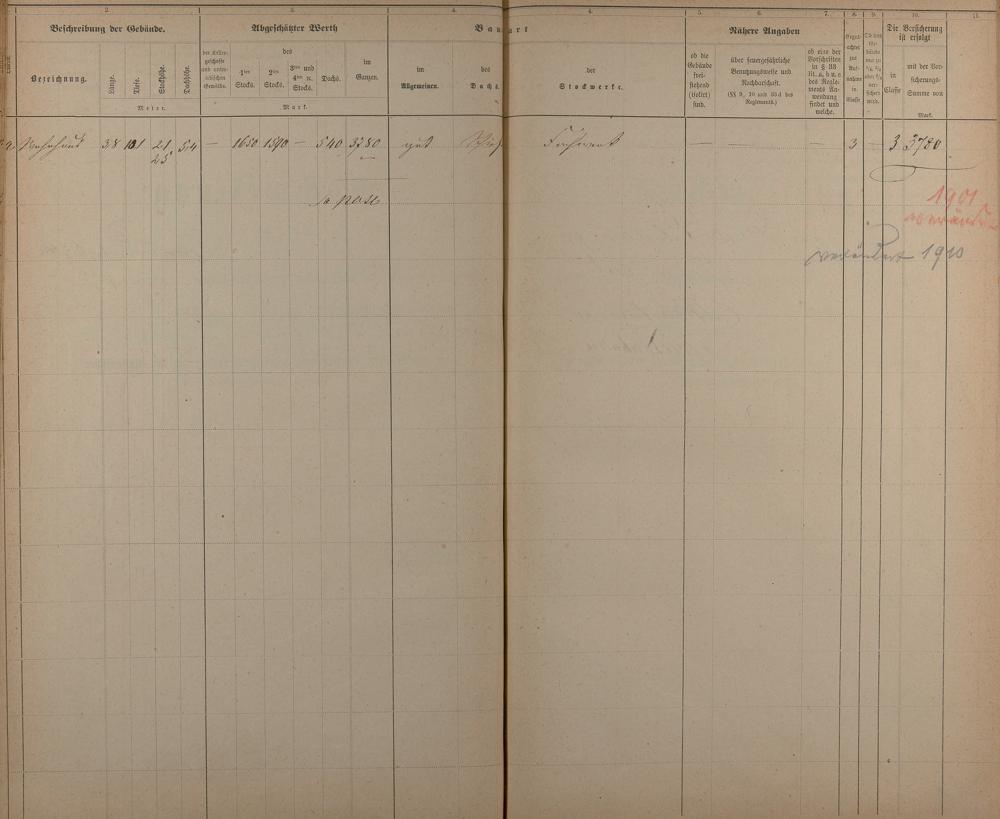 2. 3. 4. 4. 5. 6. 7. 8. 9. 10. 11.
Beschreibung der Gebäude. Abgeschätzter Werth Bauart Nähere Angaben Die Versicherung ist erfolgt
Bezeichnung. Länge. Tiefe. Stockhöhe. Dachhöhe.
Meter.
der Kellergeschosse und unterirdischen Gewölbe.
des
1ten Stocks. 2ten Stocks. 3ten und 4ten u. Stocks. Dachs. im Ganzen.
Mark.
im Allgemeinen. des Dachs. der Stockwerke.
ob die Gebäude freistehend (isolirt) sind.
über feuergefährliche Benutzungsweise und Nachbarschaft.
(§§ 9, 10 und 33 d des Reglements.)
ob eine der Vorschriften in § 33 lit. a, b u. c des Reglements Anwendung findet und welche.
in Classe
in Classe mit der Versicherungs-Summe von
Mark.
a Wohnhaus 38 101 21 25 54 — 1650 1590 — 540 3780 gut Fachwerk — — — 3 — 3 3780
1901
verändert
verändert 1910